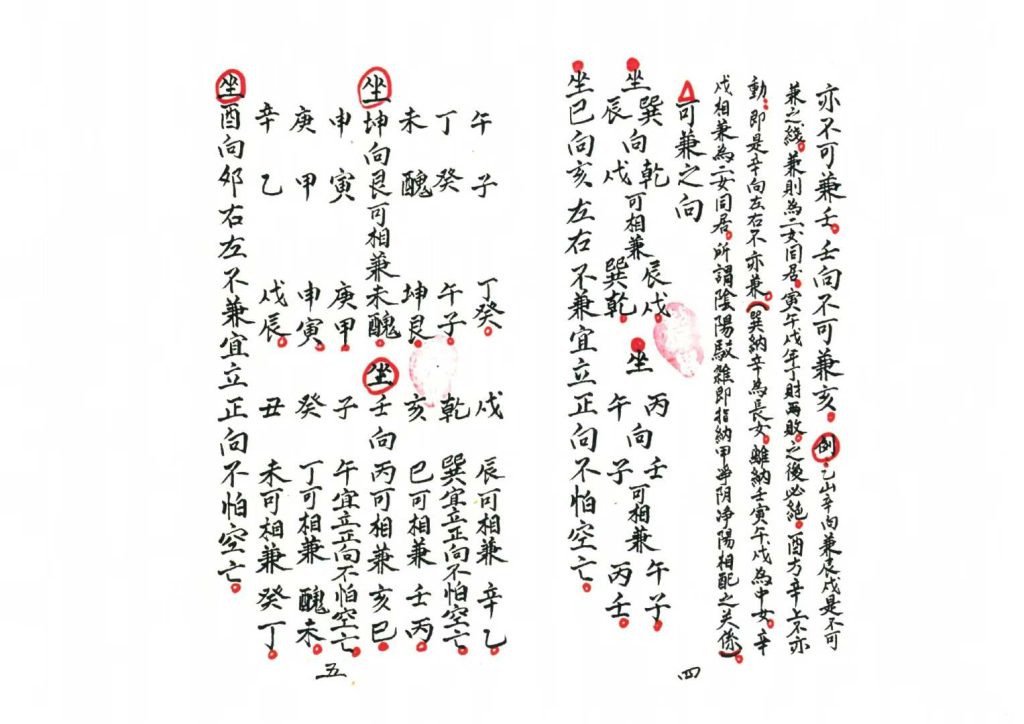 亦不可兼壬。壬向不可兼亥。例。乙山辛向兼辰戌是不可
兼之線。兼則為二女同居。寅午戌年丁財兩敗。之後必絕。酉方辛上不亦
動。即是辛向左右不亦兼。(巽納辛為長女。離納壬寅午戌為中女。辛
戌相兼為二女同居。所謂陰陽駁雜即指納甲淨阴淨陽相配之关係)。
可兼之向
坐巽向乾可相兼辰戌。坐丙向壬可相兼午子。
辰戌巽乾。午子丙壬。
坐巳向亥左右不兼宜立正向不怕空亡。
四
午子丁癸。戌辰可相兼辛乙。
丁癸午子。乾巽宜立正向不怕空亡。
未醜坤艮。亥巳可相兼壬丙。
坐坤向艮可相兼未醜。坐壬向丙可相兼亥巳。
申寅庚甲。子午宜立正向不怕空亡。
庚甲申寅。癸丁可相兼醜未。
辛乙戌辰。丑未可相兼癸丁。
坐酉向卯右左不兼宜立正向不怕空亡。
五